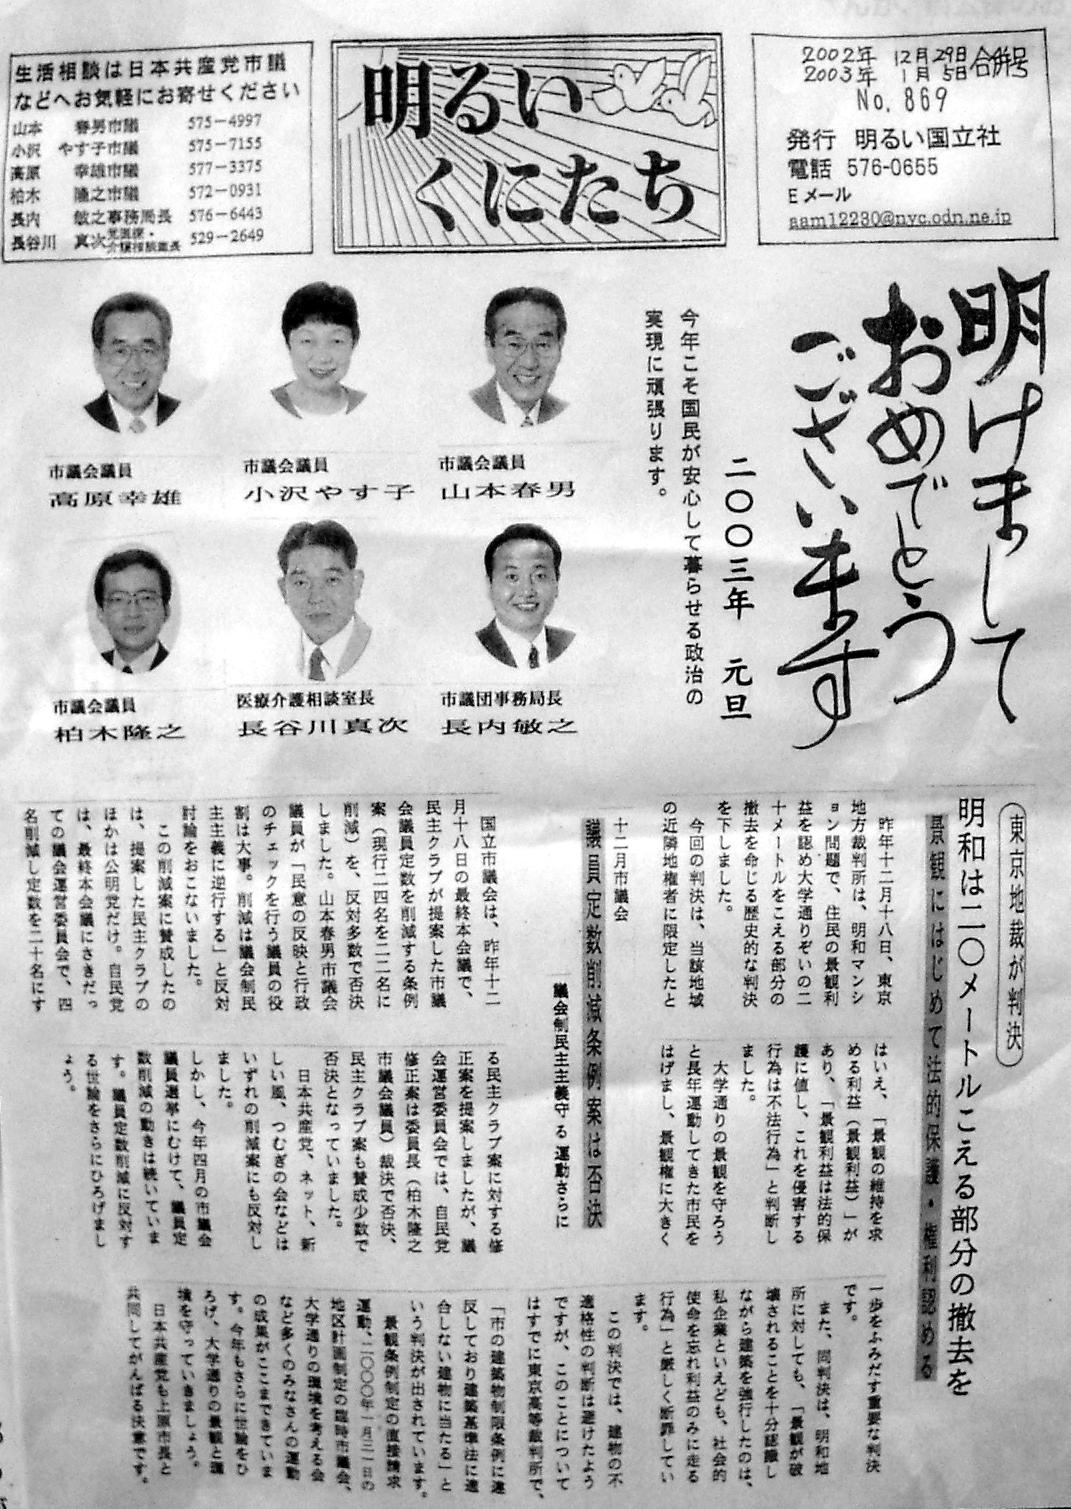 生活相談は日本共産党市議
などへお気軽にお寄せください
山本 春男市議 575-4997
小沢 やす子市議 575-7155
高原 幸雄市議 577-3375
柏木 隆之市議 572-0931
長内 敏之事務局長 576-6443
長谷川 真次 529-2649
明るい
くにたち
2002年 12月29日
2003年 1月5日合併号
No,869
発行 明るい国立社
電話 576-0655
Eメール
aam12230@nyc.odn.ne.jp
明けまして
おめでとう
ございます
二〇〇三年 元旦
今年こそ国民が安心して暮らせる政治の
実現に頑張ります。
市議会議員
山本春男
市議会議員
小沢やす子
市議会議員
高原幸雄
市議団事務局長
長内敏之
医療介護相談室長
長谷川真次
市議会議員
柏木隆之
東京地裁が判決
明和は二〇メートルこえる部分の撤去を
景観にはじめて法的保護・権利認める
昨年十二月十八日、東京
地方裁判所は、明和マンシ
ョン問題で、住民の景観利
益を認め大学通りぞいの二
十メートルをこえる部分の
撤去を命じる歴史的な判決
を下しました。
今回の判決は、当該地域
の近隣地権者に限定したと
はいえ、「景観の維持を求
める利益(景観利益)」が
あり、「景観利益は法的保
護に値し、これを侵害する
行為は不法行為」と判断し
ました。
大学通りの景観を守ろう
と長年運動してきた市民を
はげまし、景観権に大きく
一歩をふみだす重要な判決
です。
また、同判決は、明和地
所に対しても、「景観が破
壊されることを十分認識し
ながら建築を強行したのは、
私企業といえども、社会的
使命を忘れ利益のみに走る
行為」と厳しく断罪してい
ます。
この判決では、建物の不
適格性の判断は避けたよう
ですが、このことについて
はすでに東京高等裁判所で、
「市の建築物制限条例に違
反しており建築基準法に適
合しない建物に当たる」と
いう判決が出されています。
景観条例制定の直接請求
運動、二〇〇〇年一月三一日の
地区計画制定の臨時市議会、
大学通りの環境を考える会
など多くのみなさんの運動
の成果がここまできていま
す。今年もさらに世論をひ
ろげ、大学通りの景観と環
境を守っていきましょう。
日本共産党も上原市長と
共同してがんばる決意です。
十二月市議会
議員定数削減条例案は否決
議会制民主主義守る運動さらに
国立市議会は、昨年十二
月十八日の最終本会議で、
民主クラブが提案した市議
会議員定数を削減する条例
案(現行二四名を二二名に
削減)を、反対多数で否決
しました。山本春男市議会
議員が「民意の反映と行政
のチェックを行う議員の役
割は大事。削減は議会制民
主主義に逆行する」と反対
討論をおこないました。
この削減案に賛成したの
は、提案した民主クラブの
ほかは公明党だけ。自民党
は、最終本会議にさきだっ
ての議会運営委員会で、四
名削減し定数を二十名にす
る民主クラブ案に対する修
正案を提案しましたが、議
会運営委員会では、自民党
修正案は委員長(柏木隆之
市議会議員)裁決で否決、
民主クラブ案も賛成少数で
否決となっていました。
日本共産党、ネット、新
しい風、つむぎの会などは
いずれの削減案にも反対し
ました。
しかし、今年四月の市議会
議員選挙にむけて、議員定
数削減の動きは続いていま
す。議員定数削減に反対す
る世論をさらにひろげまし
ょう。